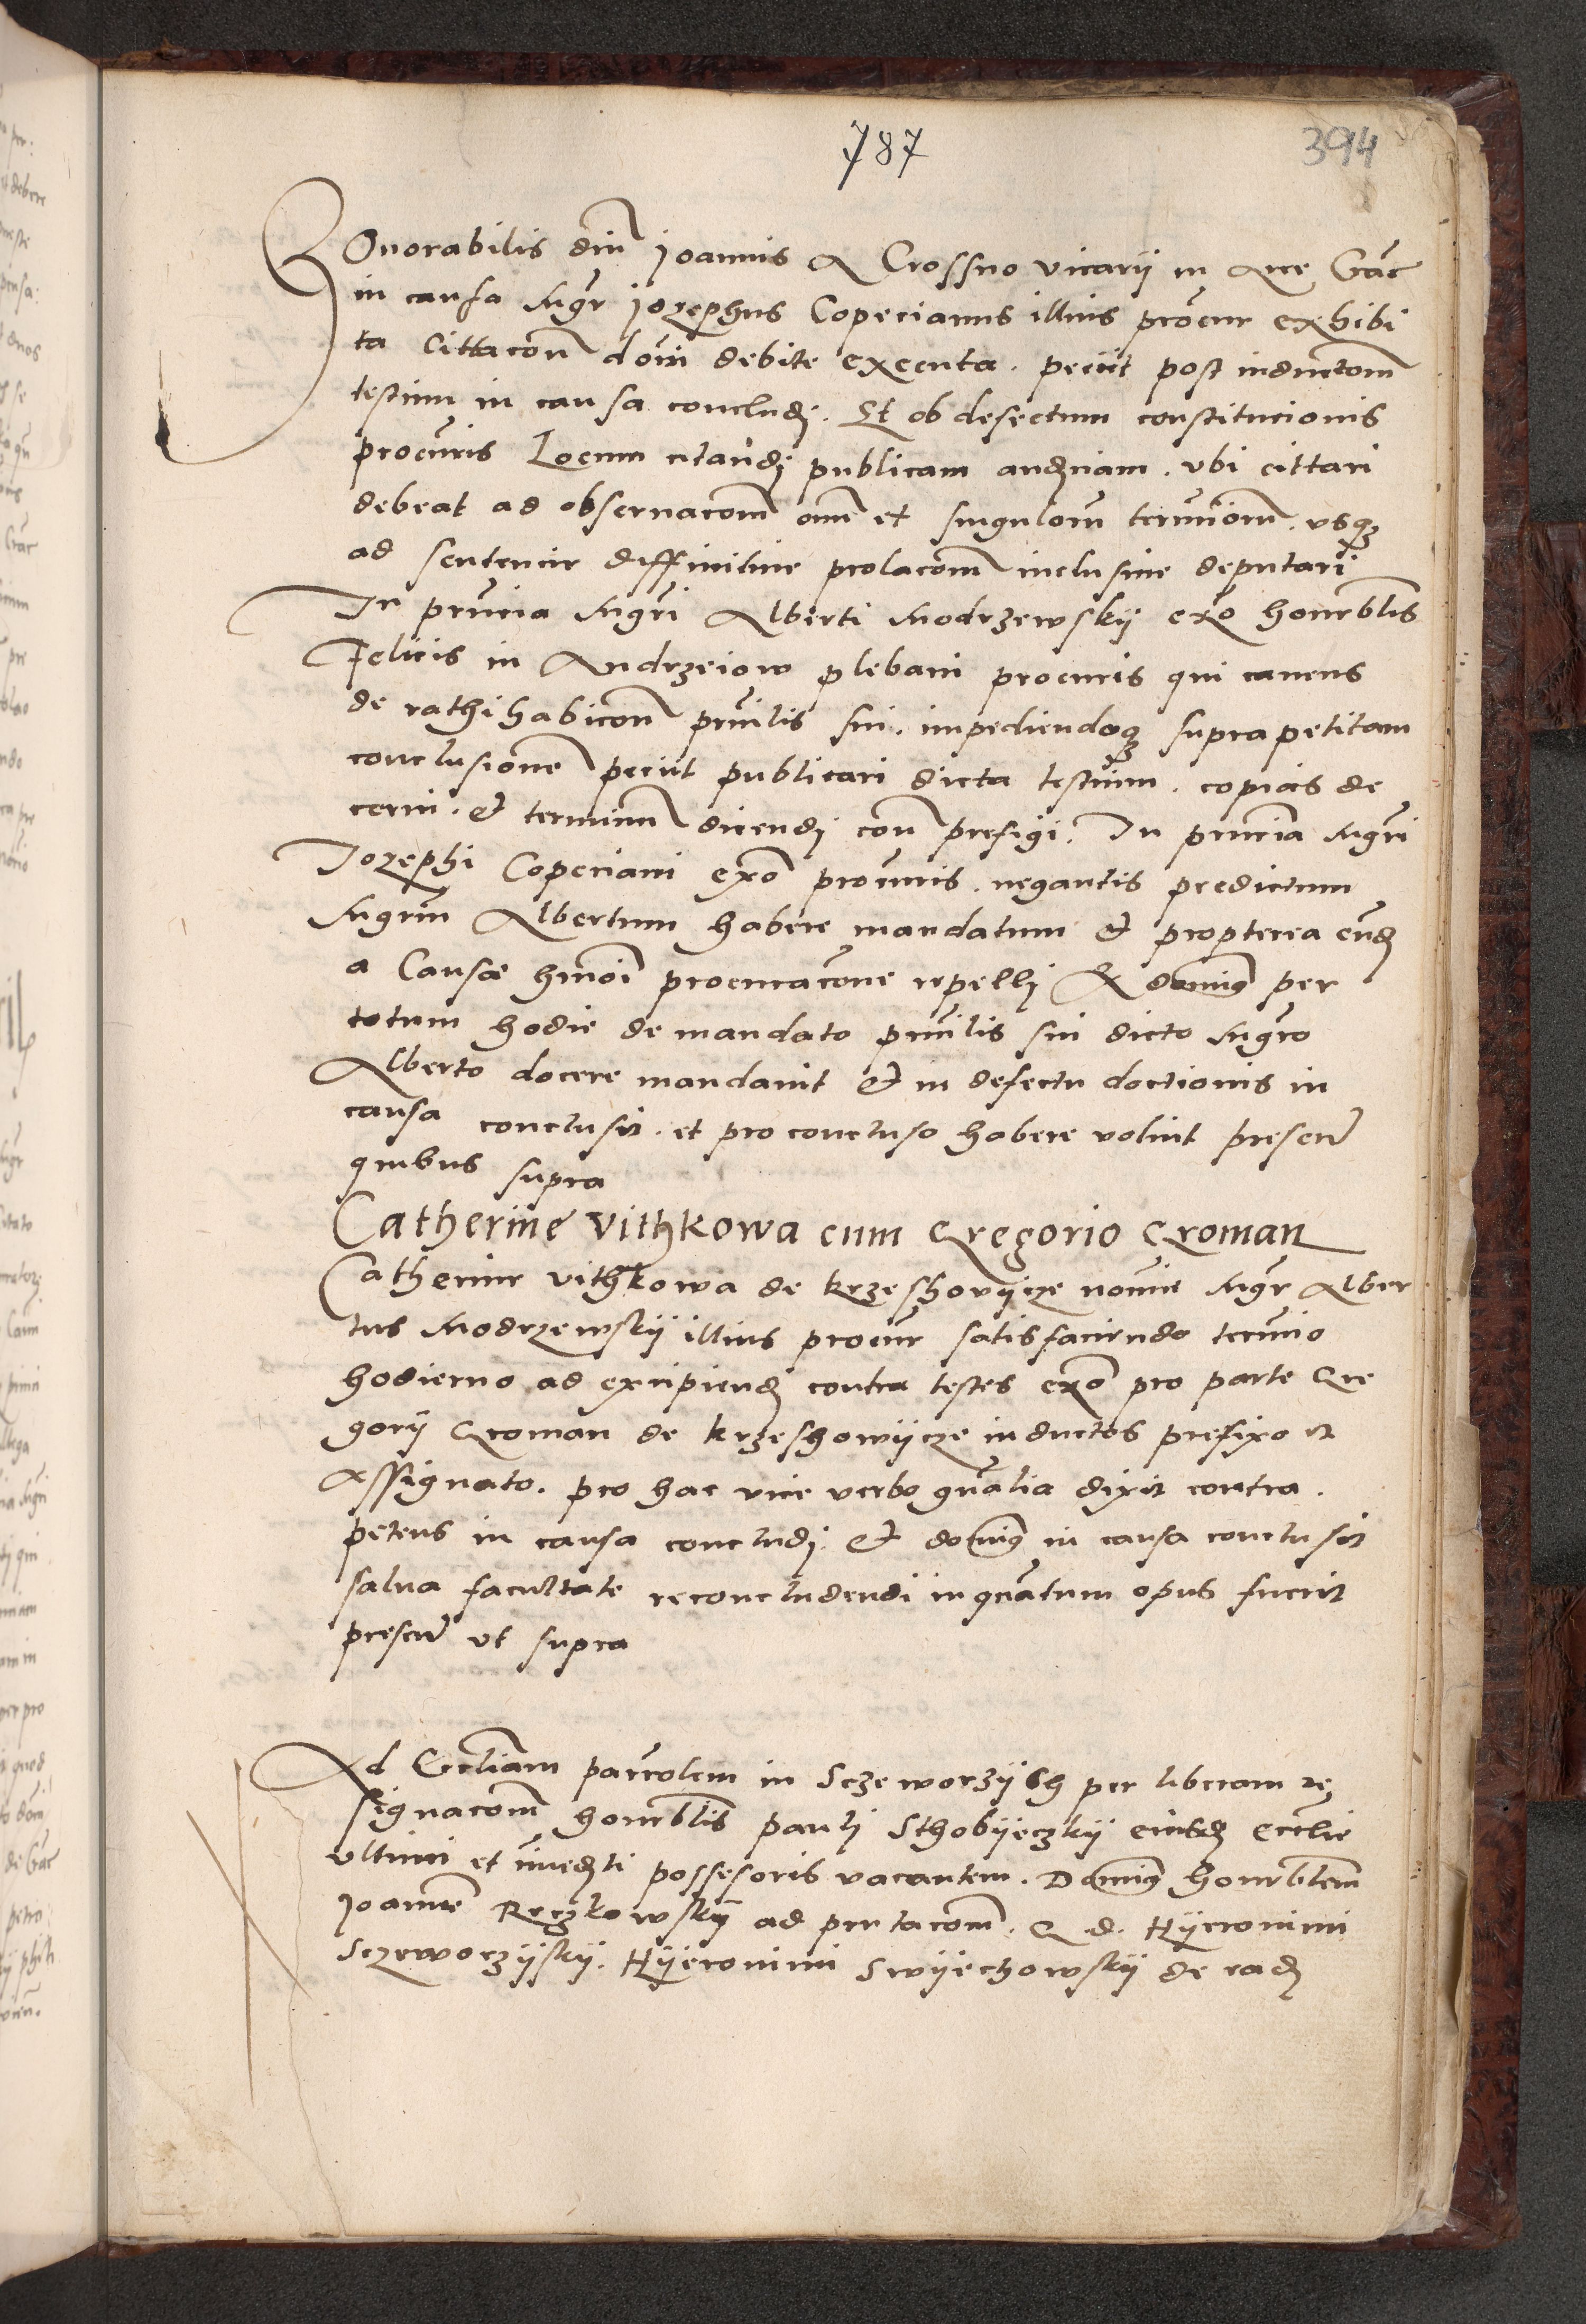 787
394
Honorabilis dni Joannis a Crossno vicarii in Arce Crac
in causa Mgr Jozephus Copecianus illius procur exhibi
ta cittacon dom debite executa. peciit post inductom
testium in causa concludj. Et ob defectum constitucionis
procuris Locum citandj publicam audnciam. vbi cittari
debeat ad obseruacom omn et singulom terminom. vsqz
ad sentencie diffinitiue prolacom inclusiue deputari
In prncia Mgri Alberti Modrzewskij exo honrblis
Felicis in Andrzeiow plebani procuris qui cauens
de rathihabicon prncilis sui. impediendoqz supra petitam
conclusionem peciit publicari dicta testium. copias de
cerni. et terminum dicendj con prefigi. In prncia Mgri
Jozephi Copeciani exo procuris. negantis predictum
Mgrum Albertum habere mandatum et propterea eund
a Causa hmoi procuracone repellj Et dominus per
totum hodie de mandato prncilis sui dicto Mgro
Alberto docere mandauit et in defectu doctionis in
causa conclusit. et pro concluso habere voluit present
quibus supra
Catherine vithkowa cum Gregorio Groman
Catherine vithkowa de krzeshovijcze nomie Mgr Alber
tus Modrzewskij illius procur satisfaciendo termino
hodierno ad excipiend contra testes exo pro parte Gre
gorij Groman de krzeshowijcze inductos prefixo et
assignato. pro hac vice verbo gnalia dixit contra.
petens in causa concludj. et dominus in causa conclusit
salua facultate reconcludendi inquantum opus fuerit
present vt supra
Ad Eccliam parrolem in Sczeworzijch per liberam re
signacom honrblis paulj Sthobijeczkij eiusd Ecclie
vltimi et immedti possesoris vacantem. Dominus honrblem
Joannem Reczkowskij ad pntacom. G d. Hijeronimi
Sczeworzijskij. Hijeronimi Swijechowskij de rad